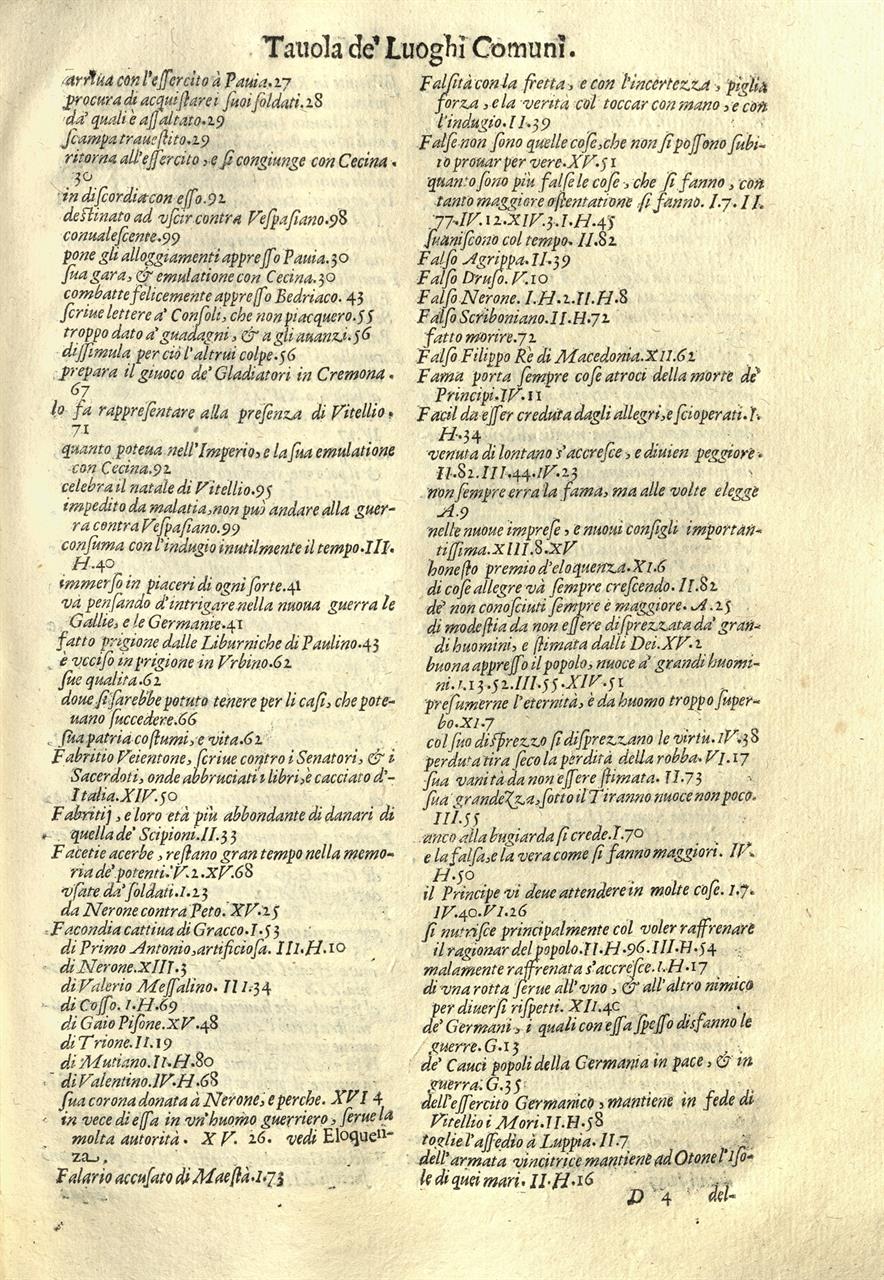 Tauola de' Luoghi Comuni.
arriua con l'eſſercito à Pauia.27
procura di acquiſtare i ſuoi ſoldati.28
da' quali è aſſaltato.29
ſcampa traueſtito.29
ritorna all'eſſercito, e ſi congiunge con Cecina.
30
in diſcordia con eſſo.92
deſtinato ad vſcir contra Veſpaſiano.98
conualeſcente.99
pone gli alloggiamenti appreſſo Pauia.30
ſua gara, & emulatione con Cecina.30
combatte felicemente appreſſo Bedriaco. 43
ſcriue lettere a' Conſoli, che non piacquero.55
troppo dato a' guadagni, & a gli auanzi.56
diſſimula per ciò l'altrui colpe.56
prepara il giuoco de' Gladiatori in Cremona.
67
lo fa rappreſentare alla preſenza di Vitellio.
71
quanto poteua nell'Imperio, e la ſua emulatione
con Cecina.92
celebra il natale di Vitellio.95
impedito da malatia, non può andare alla guer-
ra contra Veſpaſiano.99
conſuma con l'indugio inutilmente il tempo.III.
H.40
immerſo in piaceri di ogni ſorte.41
và penſando d'intrigare nella nuoua guerra le
Gallie, e le Germanie.41
fatto prigione dalle Liburniche di Paulino.43
è vcciſo in prigione in Vrbino.62
ſue qualita.62
doue ſi ſarebbe potuto tenere per li caſi, che pote-
uano ſuccedere.66
ſua patria coſtumi, e vita.62
Fabritio Veientone, ſcriue contro i Senatori, & i
Sacerdoti, onde abbruciati i libri, è cacciato d'-
Italia.XIV.50
Fabritij, e loro età più abbondante di danari di
quella de' Scipioni.II.33
Facetie acerbe, reſtano gran tempo nella memo-
ria de' potenti.V.2.XV.68
vſate da' ſoldati.I.23
da Nerone contra Peto. XV.25
Facondia cattiua di Gracco.I.53
di Primo Antonio, artificioſa. III.H.10
di Nerone.XIII.3
di Valerio Meſſalino. III.34
di Coſſo. I.H.69
di Gaio Piſone.XV.48
di Trione.II.19
di Mutiano.II.H.80
di Valentino.IV.H.68
ſua corona donata à Nerone, e perche. XVI 4
in vece di eſſa in vn'huomo guerriero, ſerue la
molta autorità. XV. 26. vedi Eloquen-
za.
Falario accuſato di Maeſtà.I.73
Falſità con la fretta, e con l'incertezza, piglia
forza, e la verità col toccar con mano, e con
l'indugio.II.39
Falſe non ſono quelle coſe, che non ſi poſſono ſubi-
to prouar per vere.XV.51
quanto ſono più falſe le coſe, che ſi fanno, con
tanto maggiore oſtentatione ſi fanno. I.7.II.
77.IV.12.XIV.3.I.H.45
ſuaniſcono col tempo. II.82
Falſo Agrippa.II.39
Falſo Druſo.V.10
Falſo Nerone. I.H.2.II.H.8
Falſo Scriboniano.II.H.72
fatto morire.72
Falſo Filippo Rè di Macedonia.XII.62
Fama porta ſempre coſe atroci della morte de'
Principi.IV.11
Facil da eſſer creduta dagli allegri, e ſcioperati.I.
H.34
venuta di lontano s'accreſce, e diuien peggiore.
II.82.III.44.IV.23
non ſempre erra la fama, ma alle volte elegge
A.9
nelle nuoue impreſe, e nuoui conſigli importan-
tiſſima.XIII.8.XV
honeſto premio d'eloquenza.XI.6
di coſe allegre và ſempre creſcendo. II.82
de' non conoſciuti ſempre è maggiore. A.25
di modeſtia da non eſſere diſprezzata da' gran-
di huomini, e ſtimata dalli Dei.XV.2
buona appreſſo il popolo, nuoce a' grandi huomi-
ni.I.13.52.III.55.XIV.51
preſumerne l'eternità, è da huomo troppo ſuper-
bo.XI.7
col ſuo diſprezzo ſi diſprezzano le virtu.IV.38
perduta tira ſeco la perdita della robba.VI.17
ſua vanità da non eſſere ſtimata. II.73
ſua grandezza, ſotto il Tiranno nuoce non poco.
III.55
anco alla bugiarda ſi crede.I.70
e la falſa, e la vera come ſi fanno maggiori. IV.
H.50
il Principe vi deue attendere in molte coſe. I.7.
IV.40.VI.26
ſi nutriſce principalmente col voler raffrenare
il ragionar del popolo.II.H.96.III.H.54
malamente raffrenata s'accreſce.I.H.17
di vna rotta ſerue all'vno, & all'altro nimico
per diuerſi riſpetti. XII.40
de' Germani, i quali con eſſa ſpeſſo disfanno le
guerre.G.13
de' Cauci popoli della Germania in pace, & in
guerra.G.35
dell'eſſercito Germanico, mantiene in fede di
Vitellio i Mori.II.H.58
toglie l'aſſedio à Luppia.II.7
dell'armata vincitrice mantiene ad Otone l'Iſo-
le di quei mari. II.H.16
D 4 del-